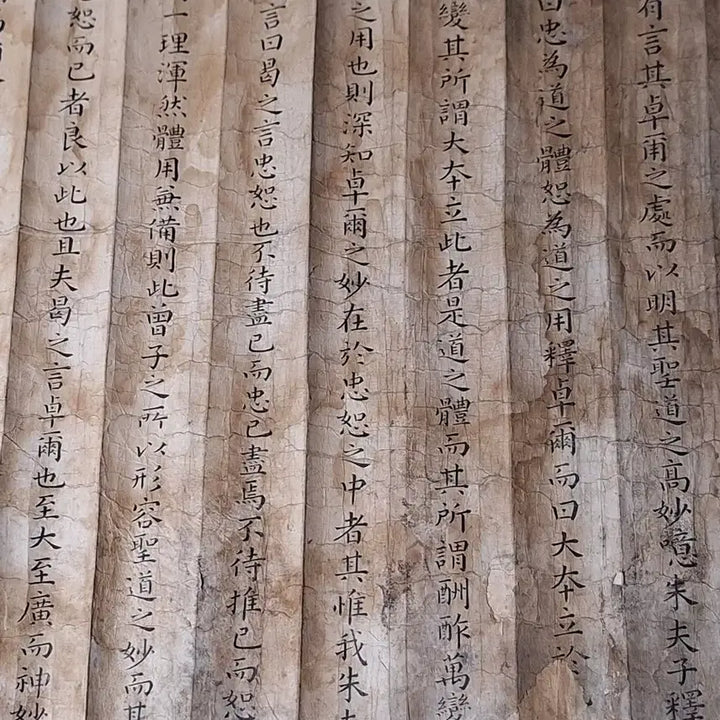 有言其卓爾之處而以明其聖道之高妙噫朱夫子釋
曰忠為道之體恕為道之用釋卓爾而曰大本立於
變其所謂大夲立此者是道之體而其所謂酬酢萬變
之用也則深知卓爾之妙在於忠恕之中者其惟我朱
言曰曷之言忠恕也不待盡己而忠己盡焉不待推己而恕
一理渾然體用兼備則此曾子之所以形容聖道之妙而其
恕而已者良以此也且夫曷之言卓爾也至大至廣而神妙